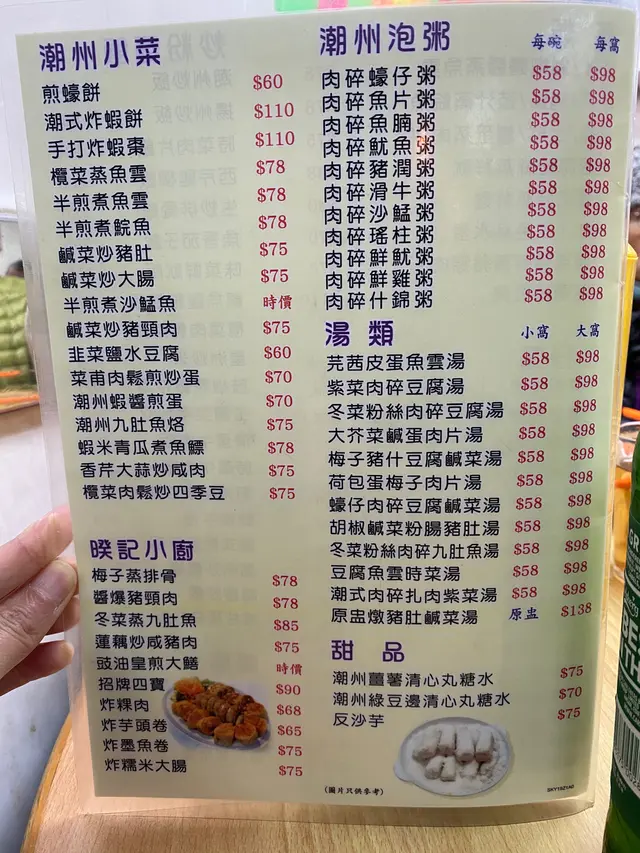 潮州小菜
煎蠔餅 $60
潮式炸蝦餅 $110
手打炸蝦棗 $110
欖菜蒸魚雲 $78
半煎煮魚雲 $78
半煎煮鯇魚 $78
鹹菜炒豬肚 $75
鹹菜炒大腸 $75
半煎煮沙鯭魚 時價
鹹菜炒豬頸肉 $75
韭菜鹽水豆腐 $60
菜甫肉鬆煎炒蛋 $70
潮州蝦醬煎蛋 $70
潮州九肚魚烙 $75
蝦米青瓜煮魚鰾 $78
香芹大蒜炒咸肉 $75
欖菜肉鬆炒四季豆 $75
暌記小廚
梅子蒸排骨 $78
醬爆豬頸肉 $78
冬菜蒸九肚魚 $85
蓮藕炒咸豬肉 $75
豉油皇煎大鱔 時價
招牌四寶 $90
炸粿肉 $68
炸芋頭卷 $65
炸墨魚卷 $75
炸糯米大腸 $75
潮州泡粥 每碗 每窩
肉碎蠔仔粥 $58 $98
肉碎魚片粥 $58 $98
肉碎魚腩粥 $58 $98
肉碎魷魚粥 $58 $98
肉碎豬潤粥 $58 $98
肉碎滑牛粥 $58 $98
肉碎沙鯭粥 $58 $98
肉碎瑤柱粥 $58 $98
肉碎鮮魷粥 $58 $98
肉碎鮮雞粥 $58 $98
肉碎什錦粥 $58 $98
湯類 小窩 大窩
芫茜皮蛋魚雲湯 $58 $98
紫菜肉碎豆腐湯 $58 $98
冬菜粉絲肉碎豆腐湯 $58 $98
大芥菜鹹蛋肉片湯 $58 $98
梅子豬什豆腐鹹菜湯 $58 $98
荷包蛋梅子肉片湯 $58 $98
蠔仔肉碎豆腐鹹菜湯 $58 $98
胡椒鹹菜粉腸豬肚湯 $58 $98
冬菜粉絲肉碎九肚魚湯 $58 $98
豆腐魚雲時菜湯 $58 $98
潮式肉碎扎肉紫菜湯 $58 $98
原盅燉豬肚鹹菜湯 原盅 $138
甜品
潮州薑薯清心丸糖水 $75
潮州綠豆邊清心丸糖水 $70
反沙芋 $75
(圖片只供參考)